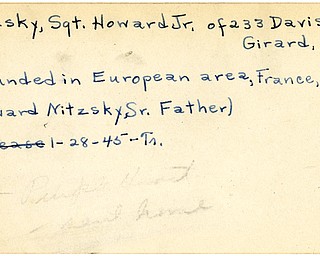 sky, Sgt. Howard Jr. of 233 Davis
Girard,
unded in European area, France,
ward Nitzsky, Sr. Father)
ease 1-28-45-Tr.
Purple Heart
sent home